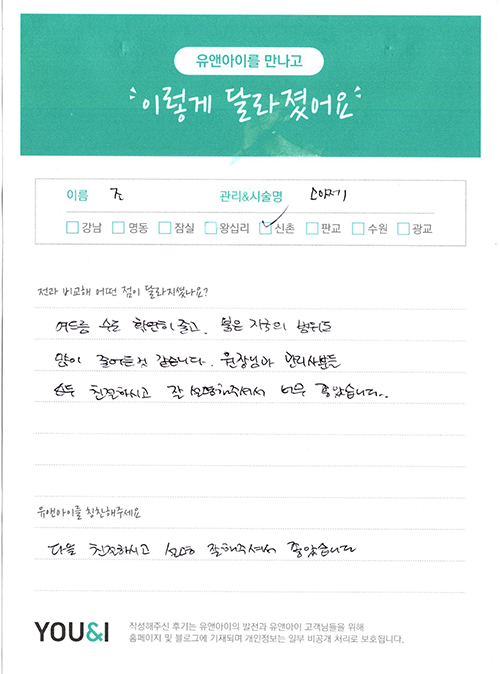 유앤아이를 만나고
이렇게 달라졌어요
이름 조 관리&시술명
강남 명동 잠실 왕십리 신촌 판교 수원 광교
전과 비교해 어떤 점이 달라지셨나요?
여드름 수도 확연히 줄고, 붉은 자국의 범위도
많이 줄어든것 같습니다. 원장님과 관리사분들
모두 친절하시고 잘 설명해주셔서 너무 좋았습니다.
유앤아이를 칭찬해주세요
다들 친절하시고 설명 잘해주셔서 좋았습니다
YOU&I
작성해주신 후기는 유앤아이의 발전과 유앤아이 고객님들을 위해
홈페이지 및 블로그에 기재되며 개인정보는 일부 비공개 처리로 보호됩니다.